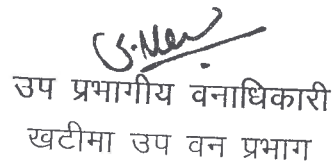 उप प्रभागीय वनाधिकारी
खटीमा उप वन प्रभाग